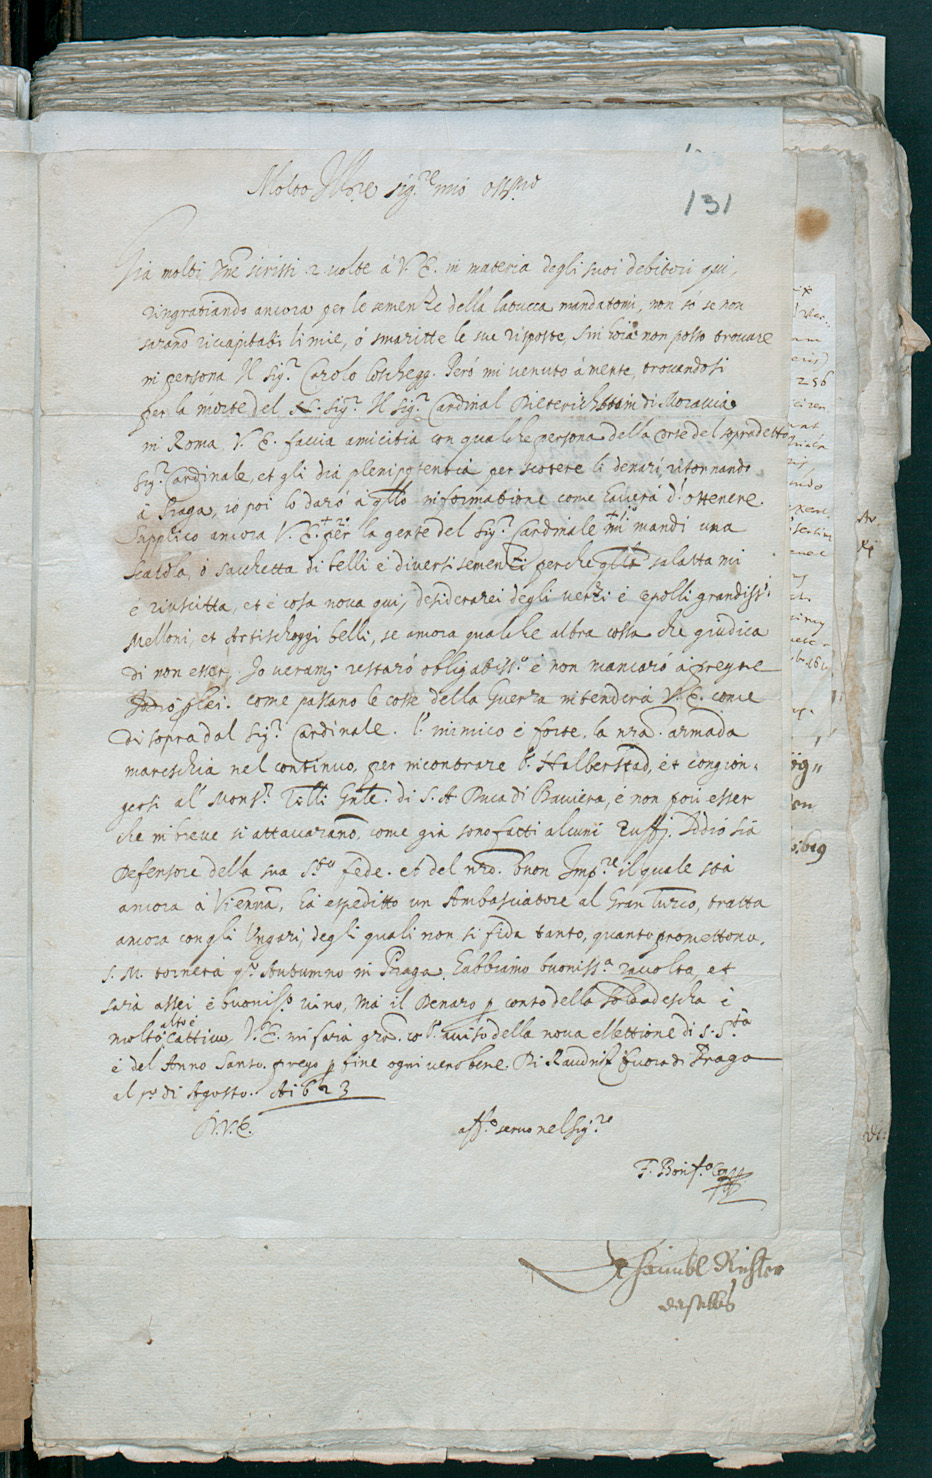 131
Molto Ill.re sig.re mio oss.mo
Già molti scrissi 2 volte à V. E. in materia degli suoi debitori qui,
ringratiando ancora per le semenze della latucca mandatomi, non só se non
sarano ricapitati li mie, ó smaritte le sue risposte, sin hora non posso trovare
in persona Il Sig.r Carolo Però mi venuto á mente, trovandosi
per la morte del Sig.r Il Sig.r Cardinal Dietrichstain di Moravia
in Roma, V. E. faccia amicitia con qualche persona della Corte del sopradetto
Sig.r Cardinale, et gli dia plenipotentia per scotere li denari, ritornando
à Praga, io poi lo daró a q̃sto informatione come haverà d'ottenere.
Supplico ancora V. E. per la gente del Sig.r Cardinale mi mandi una
scatola, ó sacchetta di belli e diversi semenzi perche q̃sta salatta mi
é riuscitta, et é cosa nova qui, desiderarei degli verzi é grandiss.i
Melloni, et Artischoggi belli, se ancora qualche altra cossa che giudica
di non esser, Io restaró obligatiss.o é non mancaró á pregare
Iddio p lei. come passano le cose della Guerza intenderà V. E. come
di sopra dal Sig.r Cardinale. l'inimico é forte, la nr̃a. armada
mareschia nel continuo, per incontrare l'Halberstad, et congion-
gersi al Mons.r Tilli Gñle. di S. A. Duca di Baviera, é non poú esser
che in breve si attaccarano, come già sono fatti alcuni zuffi. Iddio sia
defensore della sua S.ta fede. et del nr̃o. buon Imp.re il quale stà
ancora à Vienna, hà espeditto un Ambasciatore al Gran Turco, tratta
ancora con gli Ungari, degli quali non si fida tanto, quanto promettono.
S. M. tornerà q.o Autumno in Praga. habbiamo buoniss.a racolta, et
sarà assei é buoniss.o vino, má il Denaro p conto della soldadescha é
alto é
molto cattivo V. E. mi farà gra. co l'aviso della nova ellettione di S. S.tà
é del Anno Santo. prego p fine ogni vero bene. Di Raudnitz fuora di Praga
al p.o di Agosto. Ai 623
D. V. E.
aff.o servo nel Sig.re
F. Bonif.o
Samuel Richter